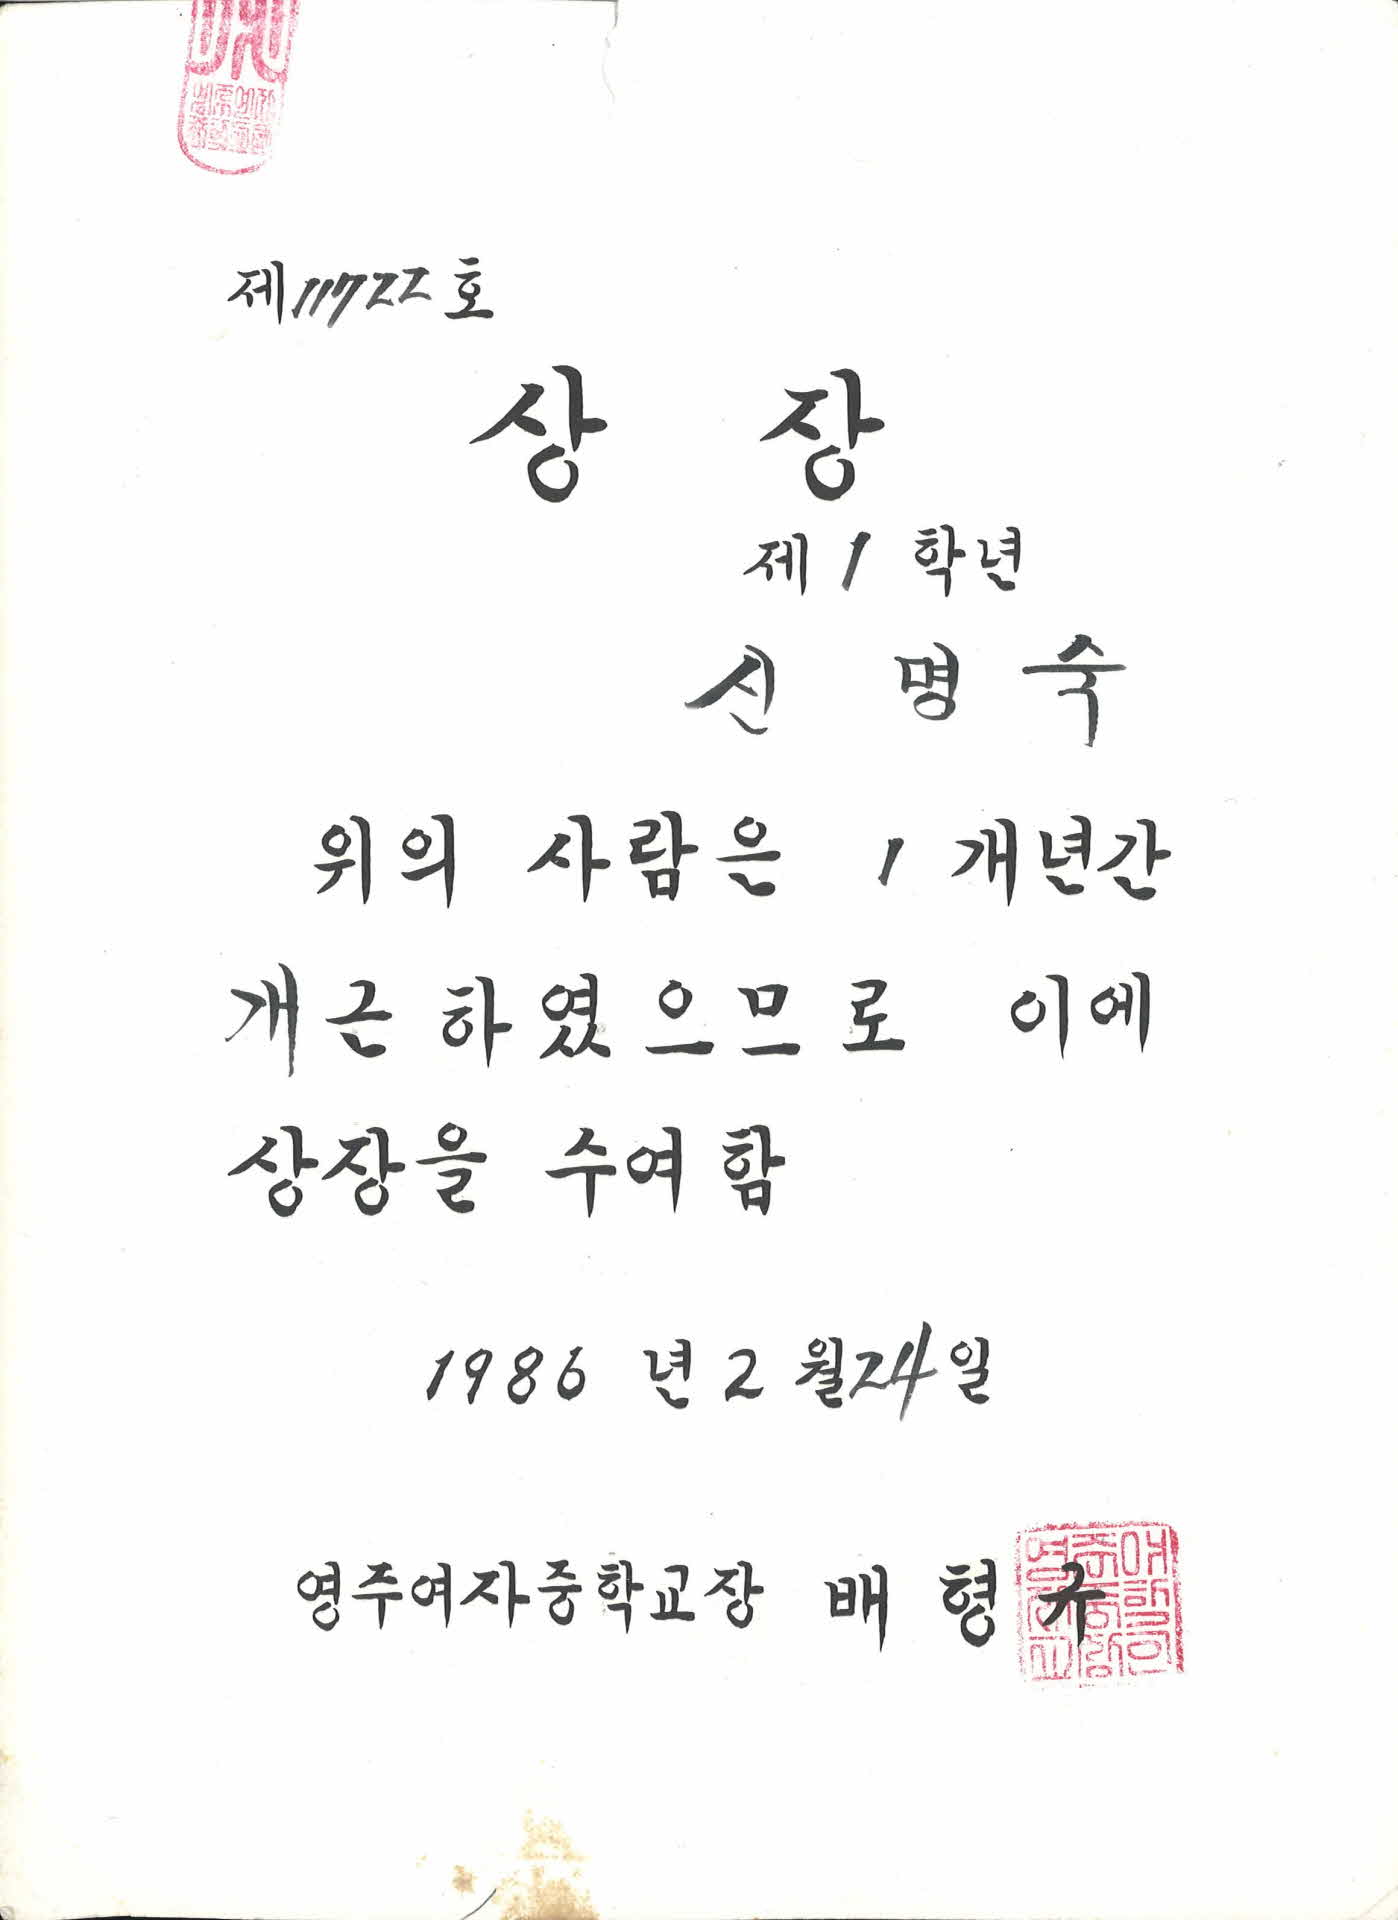 제11722호
상 장
제 1 학년
신 명 숙
위의 사람은 1 개년간
개근하였으므로 이에
상장을 수여함
1986 년 2 월 24 일
영주여자중학교장 배 형 규